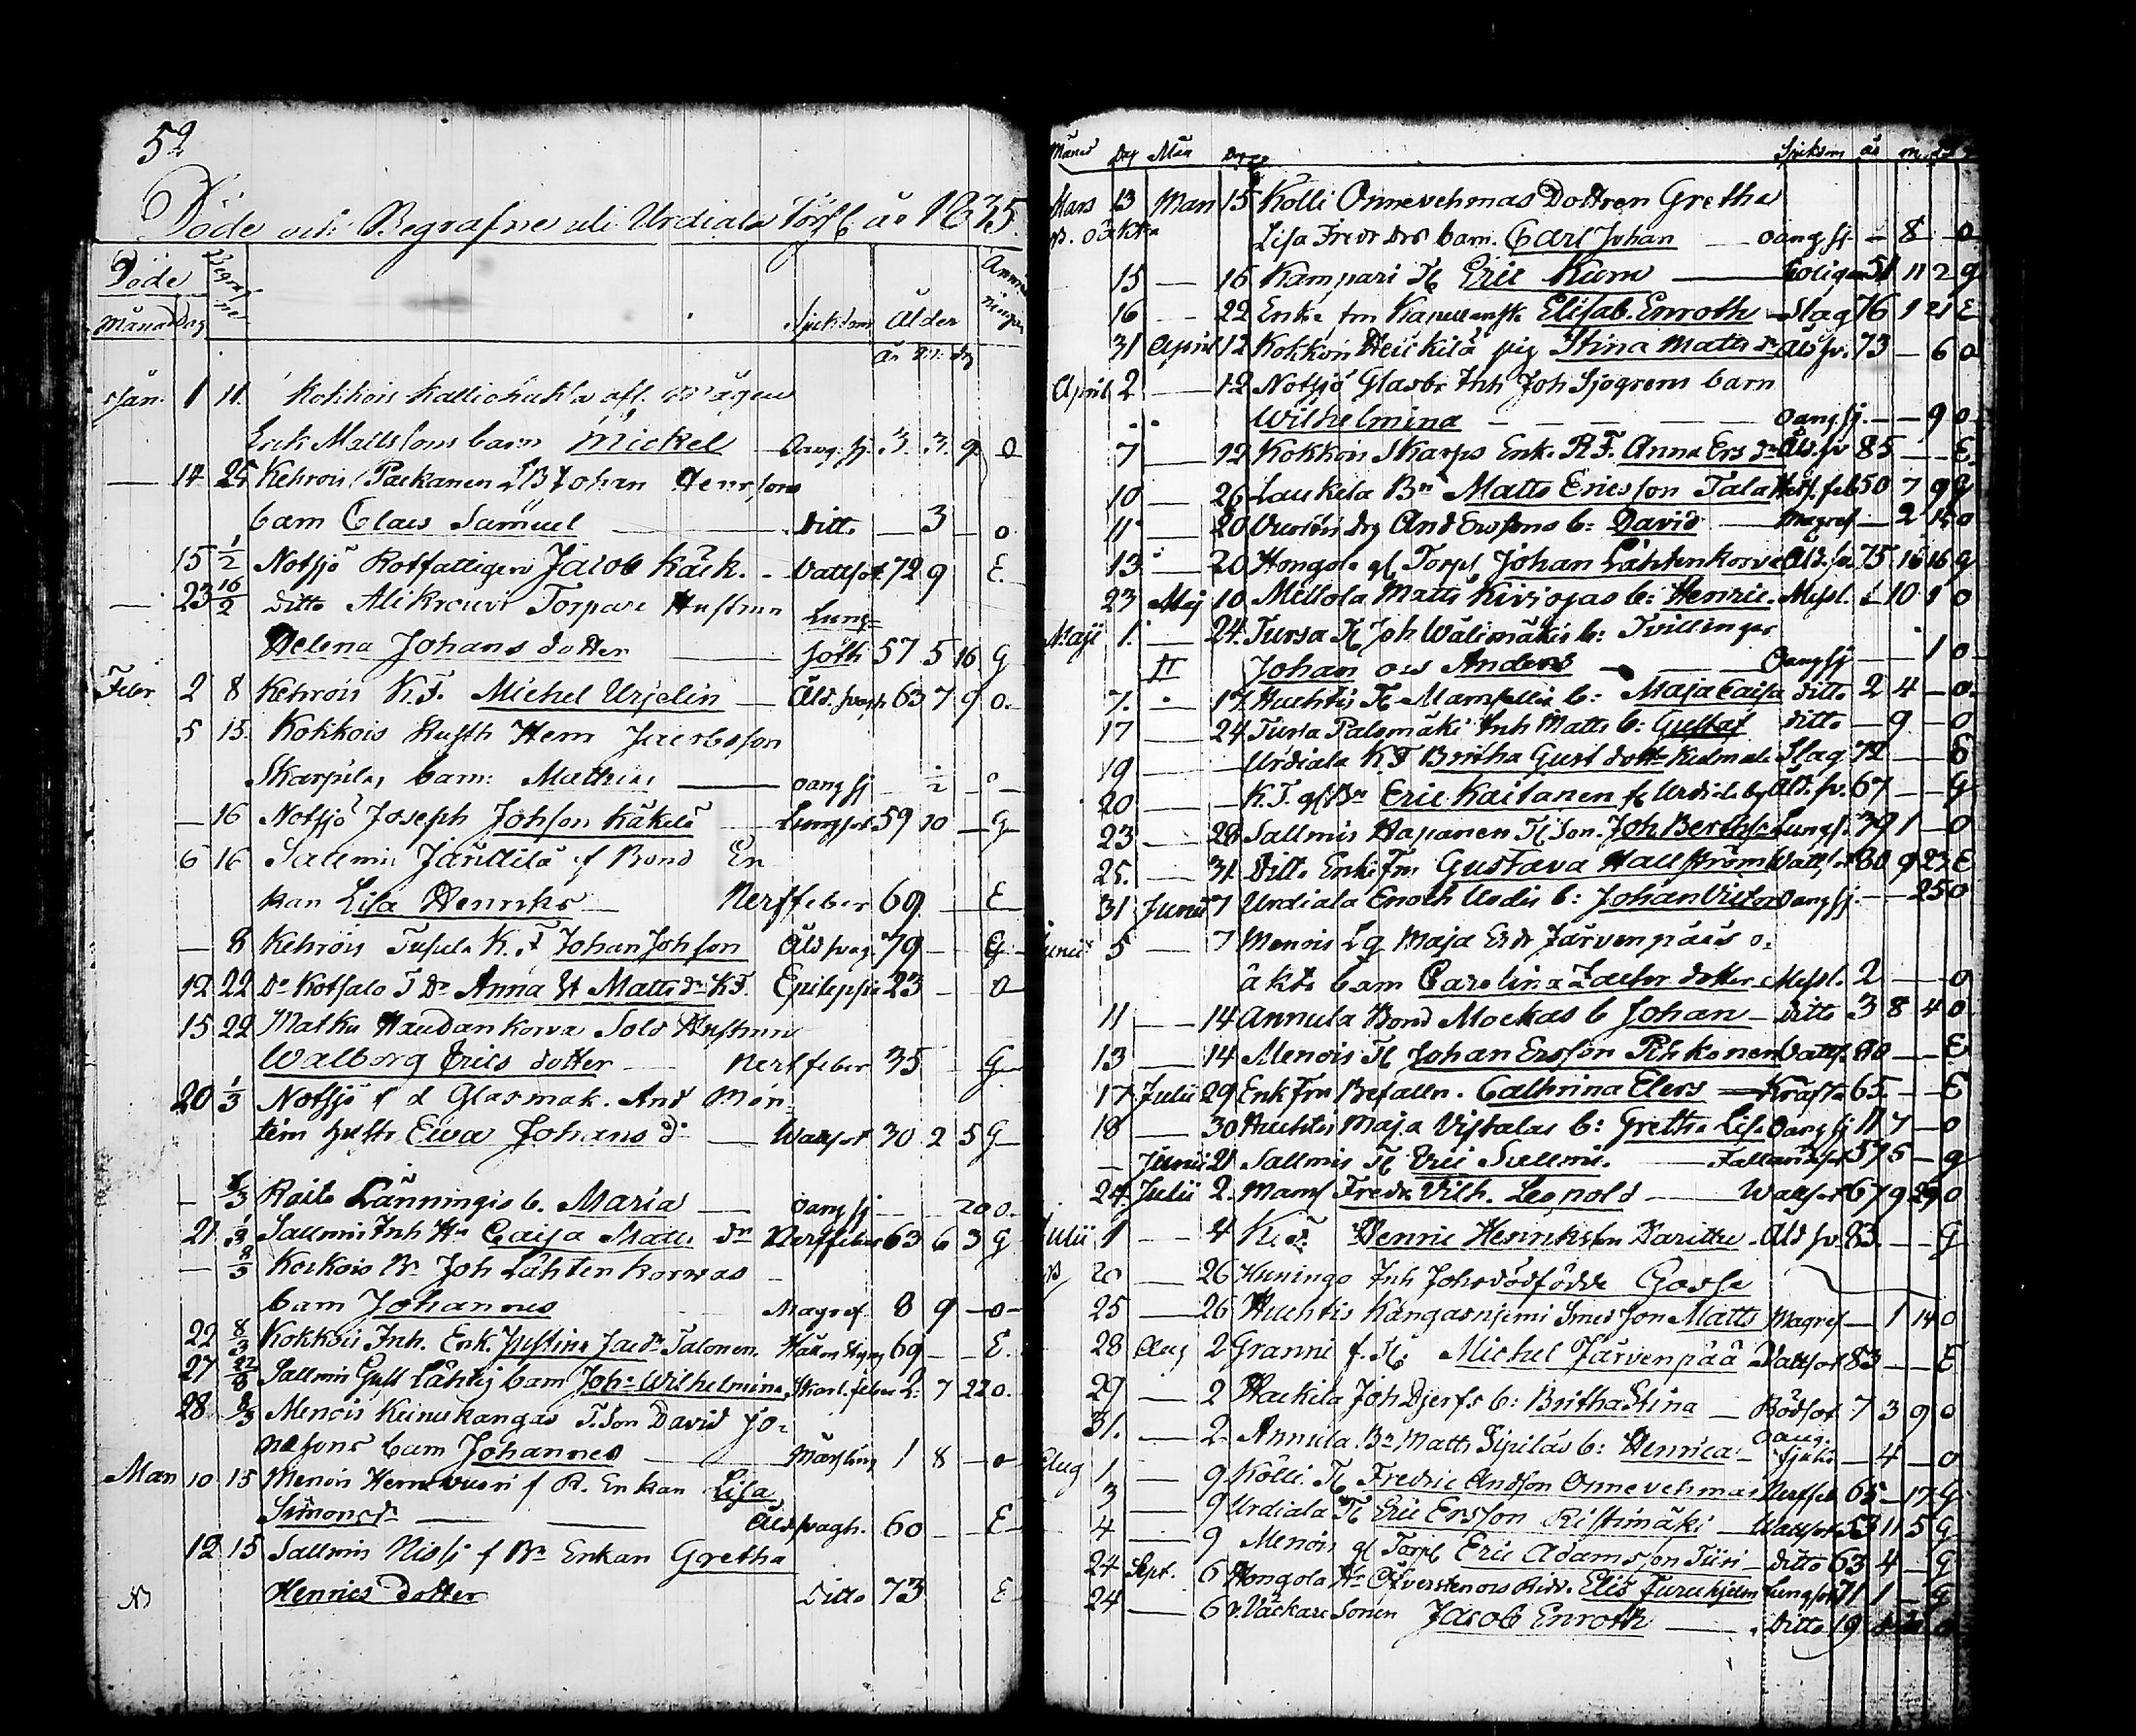 52
Döde och Begrafne uti Urdiala församl. år 1835.
Döde Begrafne Anmärkningar
Månad Dag Sjukdom Ålder
år m. dg
Jan. 1 11. Kokkois Kalliohuhta afl.
Erik Mattssons barn Mickel Oang. sj. 3. 3. 9 O
— 14 25 Kehrois Paekanen Johan Henrssons
barn Claes Samuel Ditto — 3 — O
15 1/2 Notsjö Rotfattigen Jacob Käck. Vattsot 72 9 E.
— 23 16/2 ditto Alikrouvi Torpare Hustrun Lung=
Helena Johans dotter söth 57 5 16 G
Febr. 2 8 Kehrois K.F. Michel Urjelin Åld. svagh 63 7 9 O.
5 15. Kokkois Husth Henr Jacobsson
Skarpilas barn: Mathias oang sj — 1/2 — O
— 16 Notsjö Joseph Johsson Käkelä Lungsot 59 10 — G
6 16 Sallmis Jäntilä f Bond En
kan Lisa Henriks Nerffeber 69 — E
— 8 Kehrois Tusula K.F Johan Johsson Åld svag. 79 — — G
12 22 Do Kotsalo T Dr Anna St Matts dr K.F. Epilepsie 23 — — O
15 22 Matku Haudankorva Sold Hustrun
Walborg Erics dotter Nerffeber 35 — G
20 1/3 Notsjö f d Glasmak. And Mon
tein hustr Ewa Johans d. Wattsot 30 2 5 G
— 8/3 Raito Länningis b. Maria oang sj — — 20 O.
21 1/3 Sallmis Inh Hu Caisa Matts dr Nerffeber 63 6 3 G
— 8/3 Kokkois Bn Joh Lähtenkorvas
barn Johannes Magref 8 9 — O
22 8/3 Kokkois Inh. Enk. Justina Jac dr Talonen. Håll o Styng 69 — — E.
27 22/3 Sallmis Gust Lähtis barn Joh:a Wilhelmina Skarl. feber 2. 7 22 O.
28 8/3 Menois Keinukangas T. Son David Jo=
nassons barn Johannes Mässling 1 8 — O
Mars 10 15 Menois Hernevuori f R. Enkan Lisa
Simons dr Åld svagh. 60 — — E
12 15 Sallmis Nissi f Bn Enkan Gretha
Henrics dotter Ditto 73 E
Månad Dag Mån Dag Sjukdom år m. dg
Mars 13 Mars 15 Kolli Onnevehmas Dottren Gretha
NB. oäkta Lisa Fredr drs barn. Carl Johan oang sj — 8 — O
15 — 15 Kampari Tl Eric Kumo 51 11 2 G
16 — 22 Enke frn Kapellansk. Elisab. Enroth Slag 76 1 21 E
31 April 12 Kokkois Heickilä pig Stina Matts dr Åld sv. 73 — 6 O
April 2 — 12 Notsjö Glasbr Inh Joh Sjögrens barn
Wilhelmina oang sj. — — 9 O
7 — 12 Kokkois Skarps Enk. R.F. Anna Ers dr Åld. sv 85 — — E.
10 — 26 Laukela Bn Matts Ericsson Tala Nerf. feb 50 7 9 G
11 — 20 And Erssons b: David Magref — 2 15 O
13 — 20 Hongola gl Torp. Johan Lähtenkorva Åld. sv. 75 16 G
23 Maj 10 Mellola Matts Kivisojas b: Henric. Messl. 1 10 1 O
Maji 1. — 24. Tursa Tl Joh Wälimäkis b: Tvillingar
Johan och Anders Oang sj — — 1 O
7. — 17. Huhtis Tl Mamsellis b: Maja Caisa ditto 2 4 — O.
17 — 24 Tursa Palomäki Inh Matts b: Gustaf ditto — 9 — O
19 — — Urdiala K.F Britha Gust dotter Slag 72 — — E
20 — — K.F. gl Bn Eric Kaitanen fr. Urdiala by Åld. sv. 67 — — G
23 — 28 Sallmis Hapanen Tl Son. Joh Bertils Lungs. 39 1 — O
25. — 31. Ditto Enke Fru Gustava Hallström Wattsot 80 9 23 E
31 Junii 7 Urdiala Enoch Uvdis b: Johan Victor Oang sj. — — 25 O
Junii 5 — 7 Menois Lg Maja Ersdr Järvenpääs o=
äkta barn Carolina dotter Messl. 2 — — O
11 — 14 Annula Bond Mockas b Johan ditto 3 8 4 O
13 — 14 Menois Tl Johan Ersson Pihkonen Vatts. 80 — — E
17 Julii 29 Enk Fru Befalln. Cathrina Elers Kräfta 65. — — E
18 — 30 Huhtis Maja Vistalas b: Gretha Lisa Oang sj 11 7 — O
— Junii 21 Sallmis Tl Eric Sallmi. Fallandesot 57 5 — G
24. Julii 2. Mams Fredr. Vilh. Leopold Wattsot 67 9 29 O
Julii 1 — 4 K. F. Henric Henriksson Åld sv. 83. — — G
NB 20 — 26 Huningo Inh Johs dödfödde Gosse
25 — 26 Huhtis Kangasniemi Smed son Matts Magref — 1 14 O
28 Aug 2 Granni f. Tl. Michel Järvenpää Vattsot 83 — — E
29 — 2 Haekila Joh Djerfs b: Britha Stina Rödsot 7 3 9 O
31. — 2. Annula. Bn Matts Sipiläs b: Henrica oang. sjukd — 4 — O
Aug 1 — 9 Kolli. Tl Fredric Andsson Onnevehmas Nerffeb 65 — 17 G
3 — 9 Urdiala Tl Eric Ersson Ristimäki Wattsot 53 11 5 G
4 — 9 Menois gl Torp Eric Adamsson Tiiri ditto 63 4 — G
24 Sept. 6 Hongola Hr Öfverstens o Ridd. Elis Furuhjelm Lungsot 71 1 — G
24 — 6 v. Väckare Sonen Jacob Enroth Ditto 19